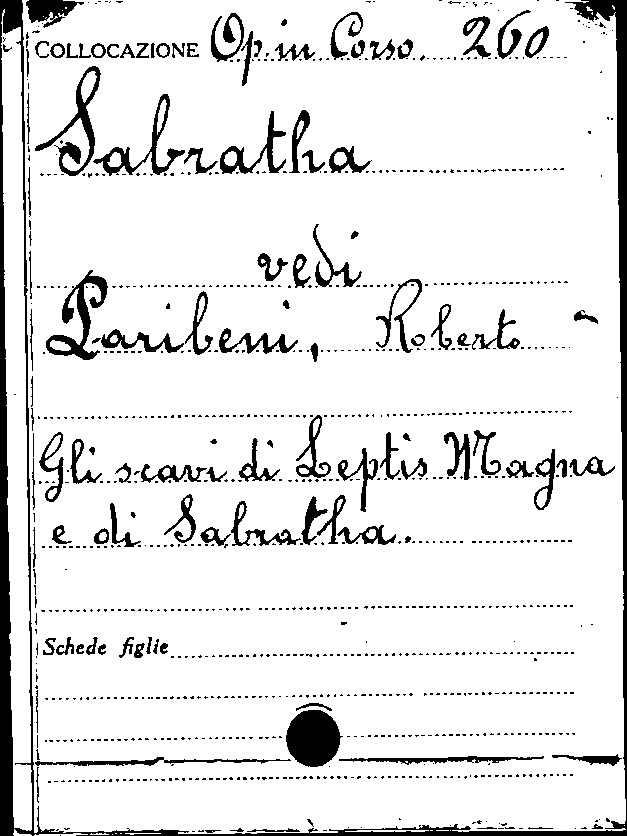 COLLOCAZIONE Op. in Corso. 260
Sabratha
vedi
Paribeni, Roberto -
Gli scavi di Leptis Magna
e di Sabratha.
Schede figlie